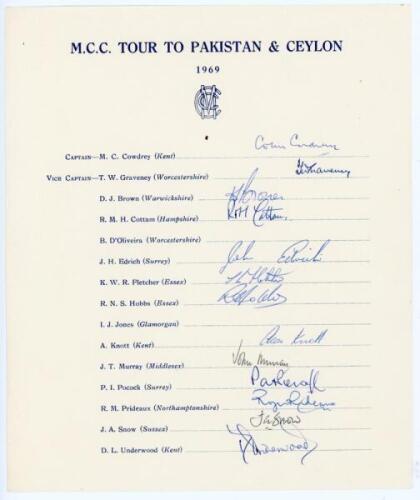 M.C.C. TOUR TO PAKISTAN & CEYLON
1969
CAPTAIN—M. C. Cowdrey (Kent) Colin Cowdrey
VICE CAPTAIN—T. W. Graveney (Worcestershire) TWGraveney
D. J. Brown (Warwickshire)
R. M. H. Cottam (Hampshire) RMH Cottam
B. D'Oliveira (Worcestershire)
J. H. Edrich (Surrey) John Edrich
K. W. R. Fletcher (Essex)
R. N. S. Hobbs (Essex)
I. J. Jones (Glamorgan)
A. Knott (Kent) Alan Knott
J. T. Murray (Middlesex) John Murray
P. I. Pocock (Surrey) Pat Pocock
R. M. Prideaux (Northamptonshire) Roger Prideaux
J. A. Snow (Sussex) J A Snow
D. L. Underwood (Kent) D Underwood